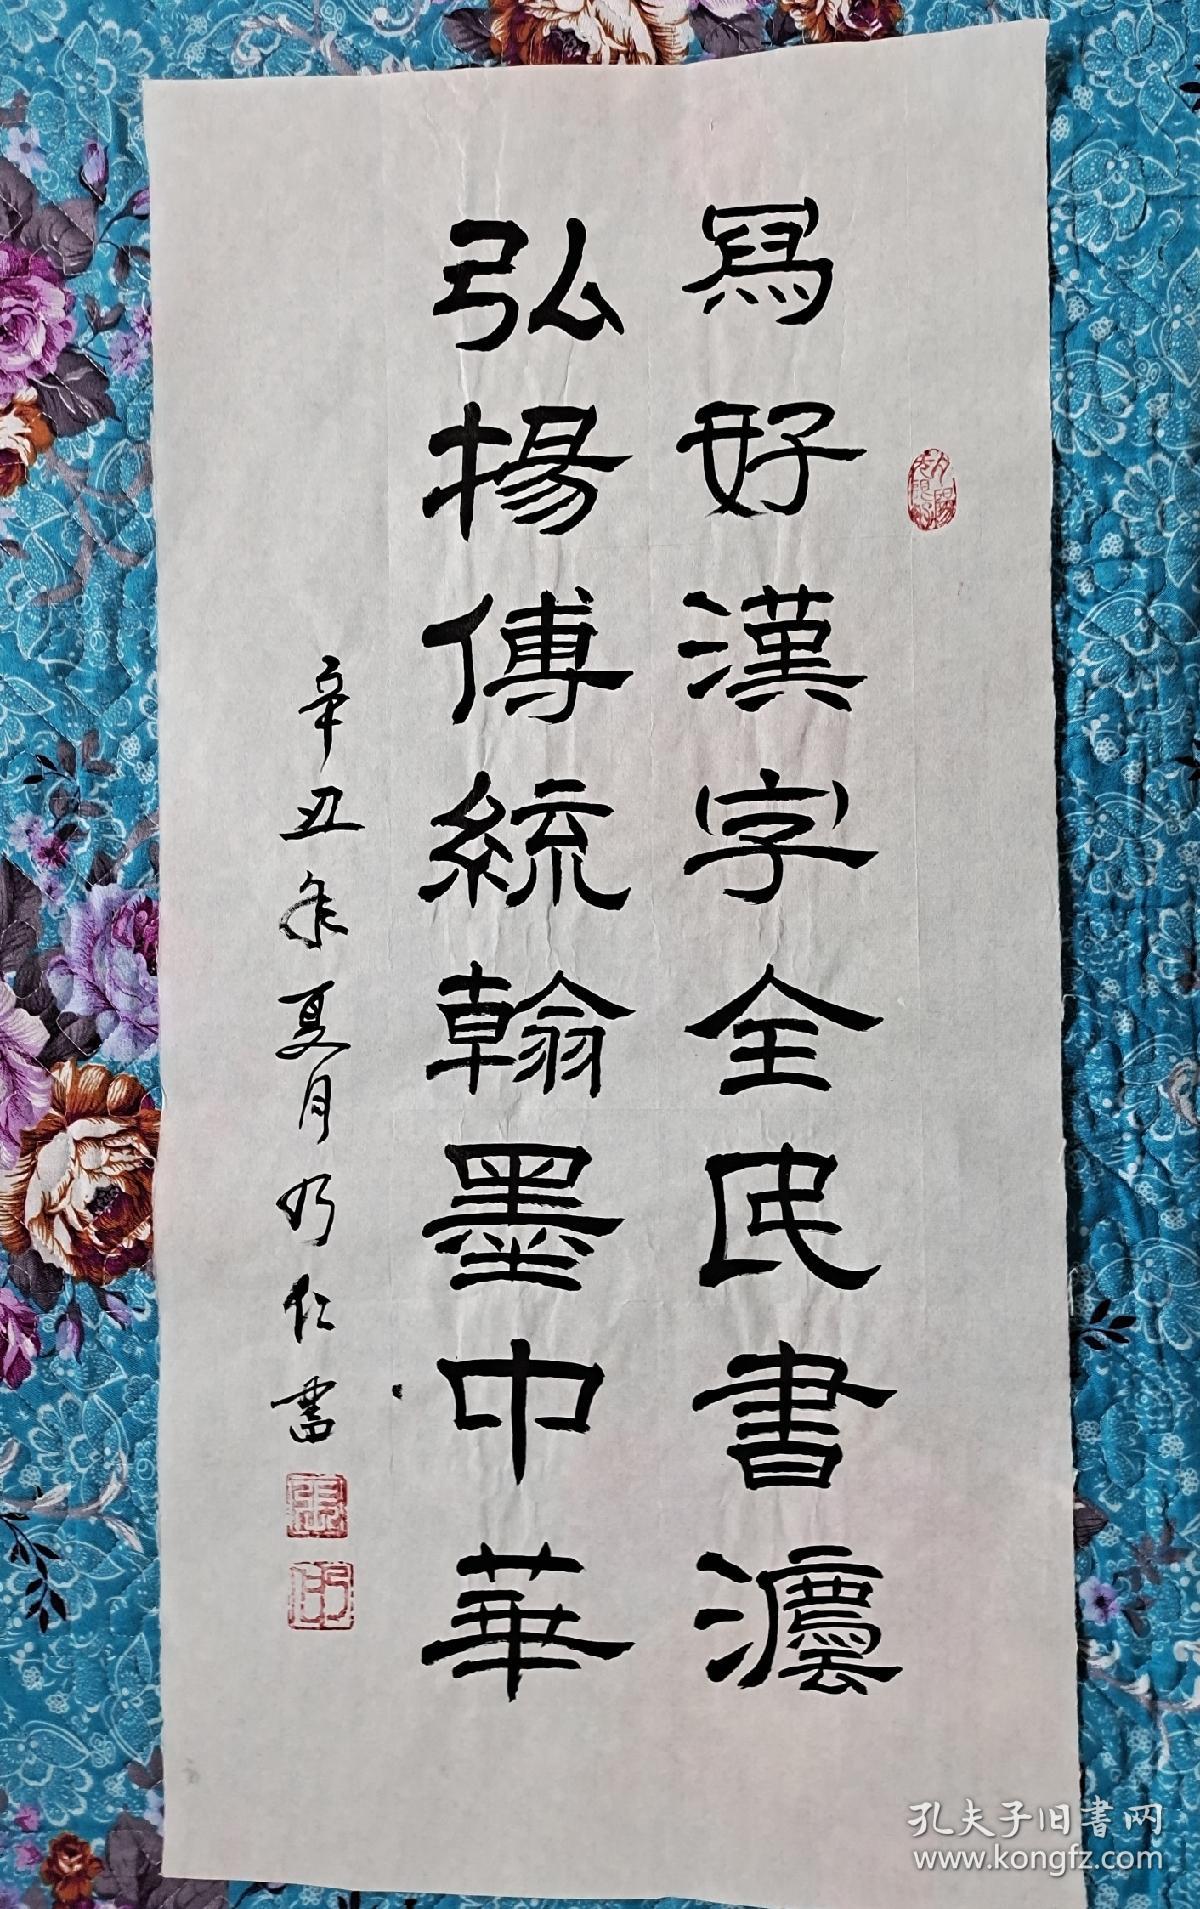 寫好漢字全民書灋
弘揚傳統翰墨中華
辛丑年夏月乃仁書
孔夫子旧書网
www.kongfz.com